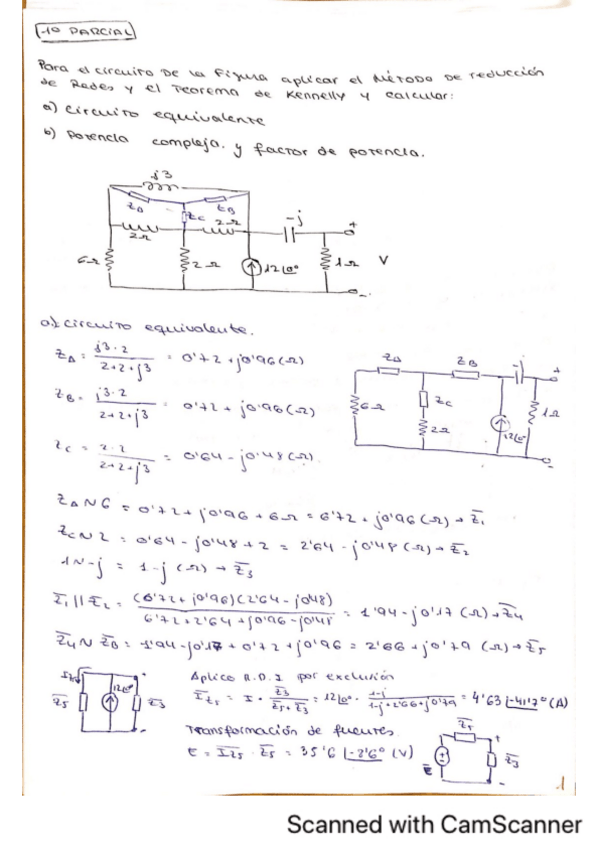 1º PARCIAL
Para el circuito De la Figura aplicar el Método De reducción
de Redes y el Teorema de Kennelly y calcular:
a) circuito equivalente
b) Potencia compleja. y factor de potencia.
j3
ZA ZB
Zc
2Ω 2Ω -j +
6Ω 2Ω 12∠0° 1Ω V
-
a) circuito equivalente.
ZA = j3·2 / 2+2+j3 = 0'72 + j0'96 (Ω)
ZB = j3·2 / 2+2+j3 = 0'72 + j0'96 (Ω)
Zc = 2·2 / 2+2+j3 = 0'64 - j0'48 (Ω)
ZA ZB -j +
6Ω Zc 1Ω
2Ω 12∠0°
-
ZA N 6 = 0'72 + j0'96 + 6Ω = 6'72 + j0'96 (Ω) → Z1
Zc N 2 = 0'64 - j0'48 + 2 = 2'64 - j0'48 (Ω) → Z2
1 N -j = 1-j (Ω) → Z3
Z1 || Z2 = (6'72 + j0'96)(2'64 - j0'48) / 6'72 + 2'64 + j0'96 - j0'48 = 1'94 - j0'17 (Ω) → Z4
Z4 N ZB = 1'94 - j0'17 + 0'72 + j0'96 = 2'66 + j0'79 (Ω) → Z5
IZ5 12∠0° +
Z5 Z3
-
Aplico R.D.I por exclusión
IZ5 = I · Z3 / Z5 + Z3 = 12∠0° · 1-j / 1-j+2'66+j0'79 = 4'63 ∠-41'7° (A)
Transformación de fuentes
E = IZ5 · Z5 = 
Z5 +
E Z3
-
1
Scanned with CamScanner